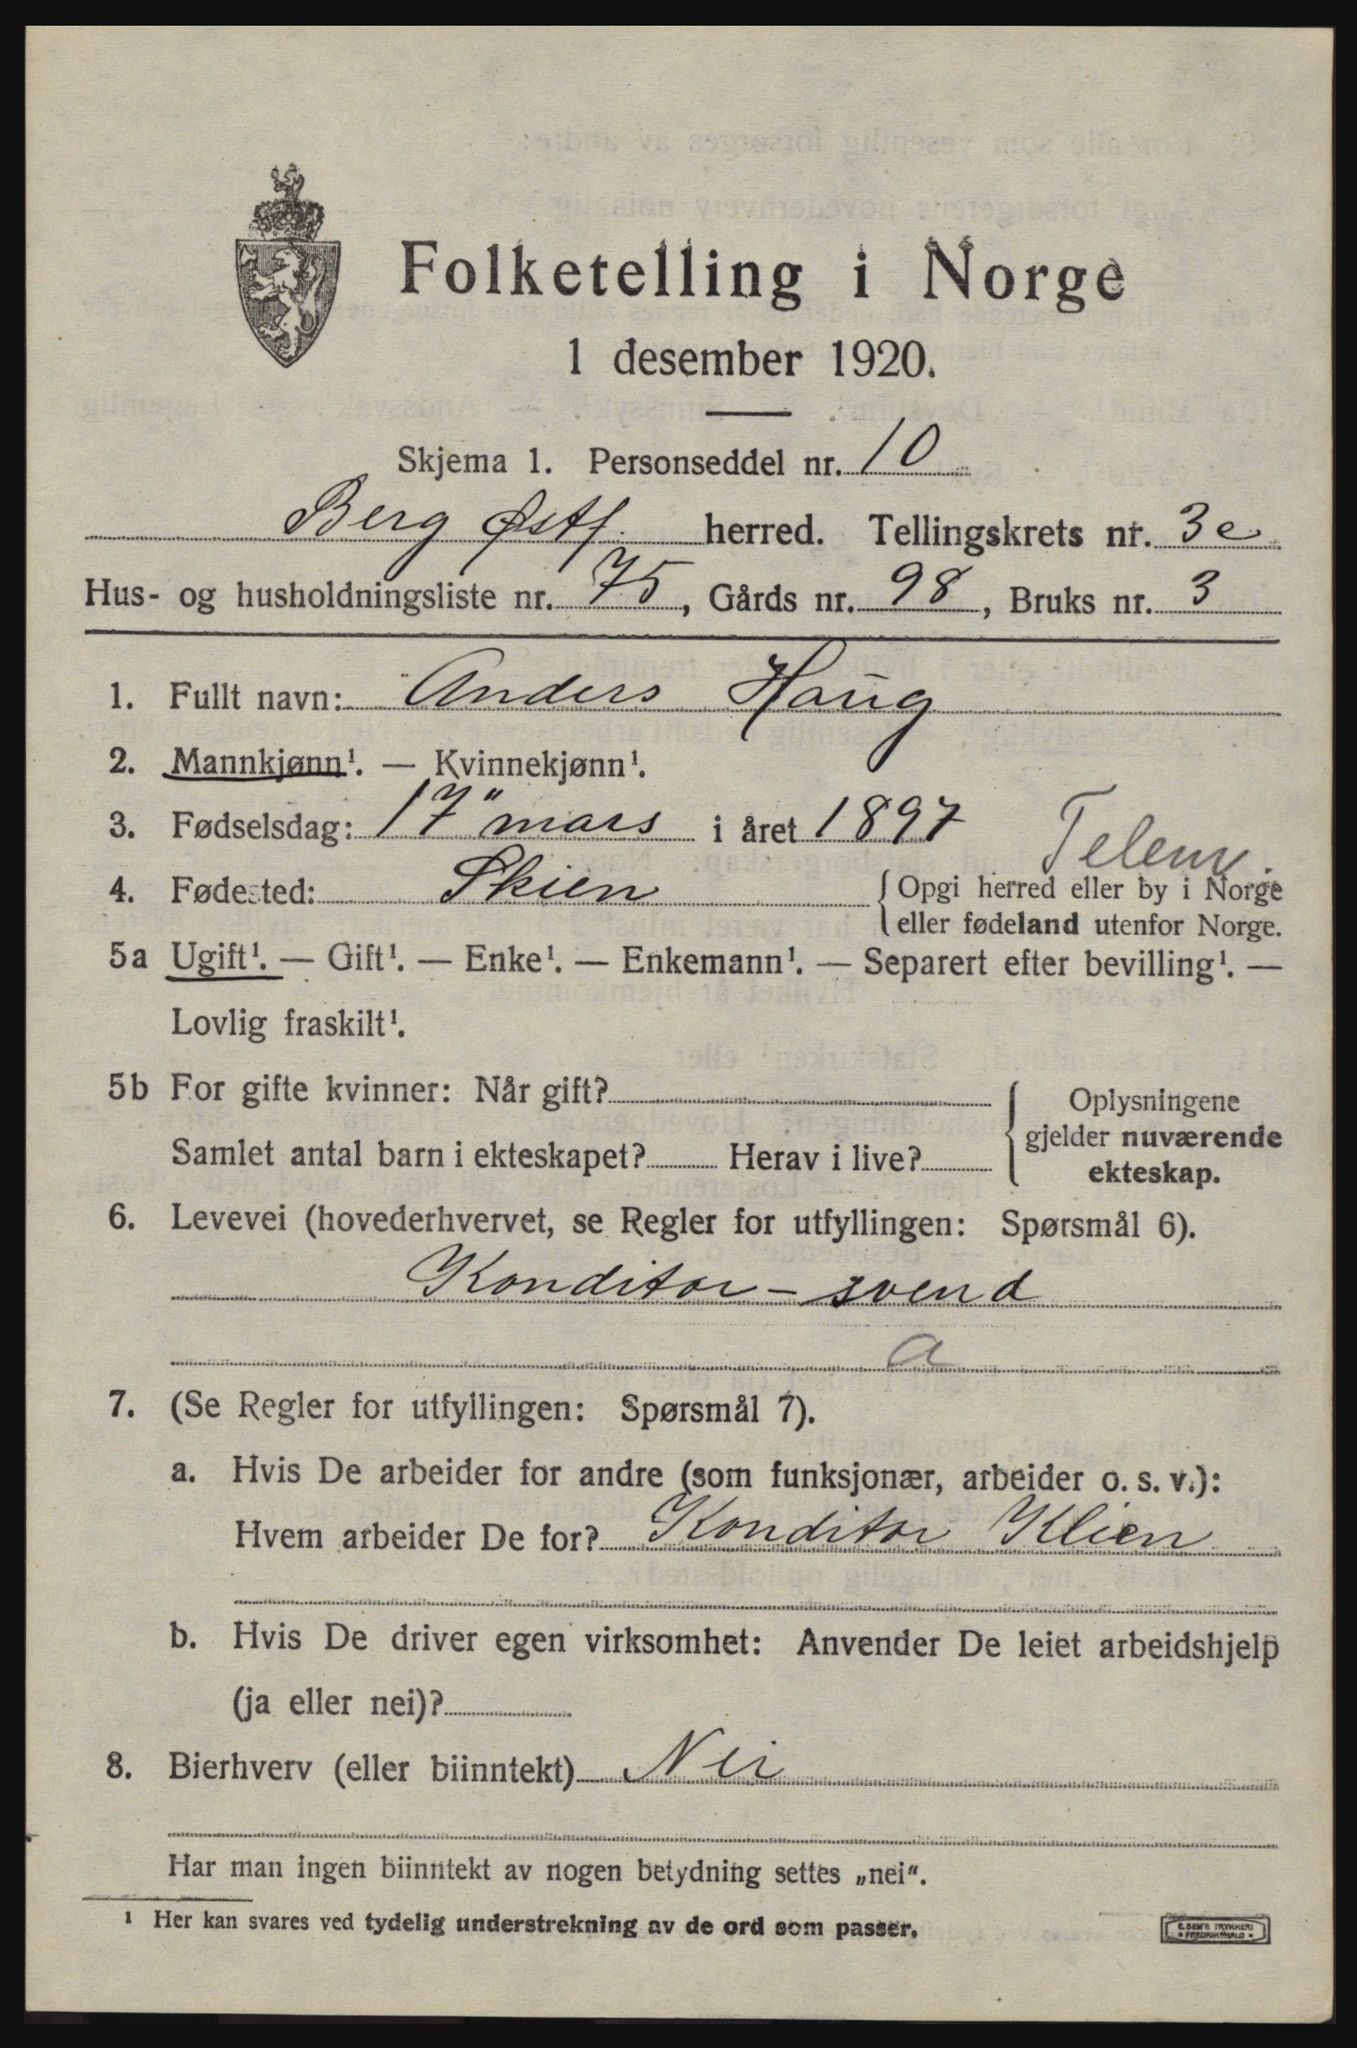 Folketelling i Norge
1 desember 1920.
Skjema 1. Personseddel nr. 10
Berg Østf. herred. Tellingskrets nr. 3e
Hus- og husholdningsliste nr. 75, Gårds nr. 98, Bruks nr. 3
1. Fullt navn: Anders Haug
2. Mannkjønn¹. — Kvinnekjønn¹.
3. Fødselsdag: 17" mars i året 1897
Telem.
4. Fødested: Skien { Opgi herred eller by i Norge
eller fødeland utenfor Norge.
5a Ugift¹. — Gift¹. — Enke¹. — Enkemann¹. — Separert efter bevilling¹. —
Lovlig fraskilt¹.
5b For gifte kvinner: Når gift?
Samlet antal barn i ekteskapet? Herav i live?
{ Oplysningene
gjelder nuværende
ekteskap.
6. Levevei (hovederhvervet, se Regler for utfyllingen: Spørsmål 6).
Konditor - svend
a
7. (Se Regler for utfyllingen: Spørsmål 7).
a. Hvis De arbeider for andre (som funksjonær, arbeider o. s. v.):
Hvem arbeider De for? Konditor Klien
b. Hvis De driver egen virksomhet: Anvender De leiet arbeidshjelp
(ja eller nei)?
8. Bierhverv (eller biinntekt) Nei
Har man ingen biinntekt av nogen betydning settes „nei".
¹ Her kan svares ved tydelig understrekning av de ord som passer.
E. SEM'S TRYKKERI
• FREDRIKSHALD •